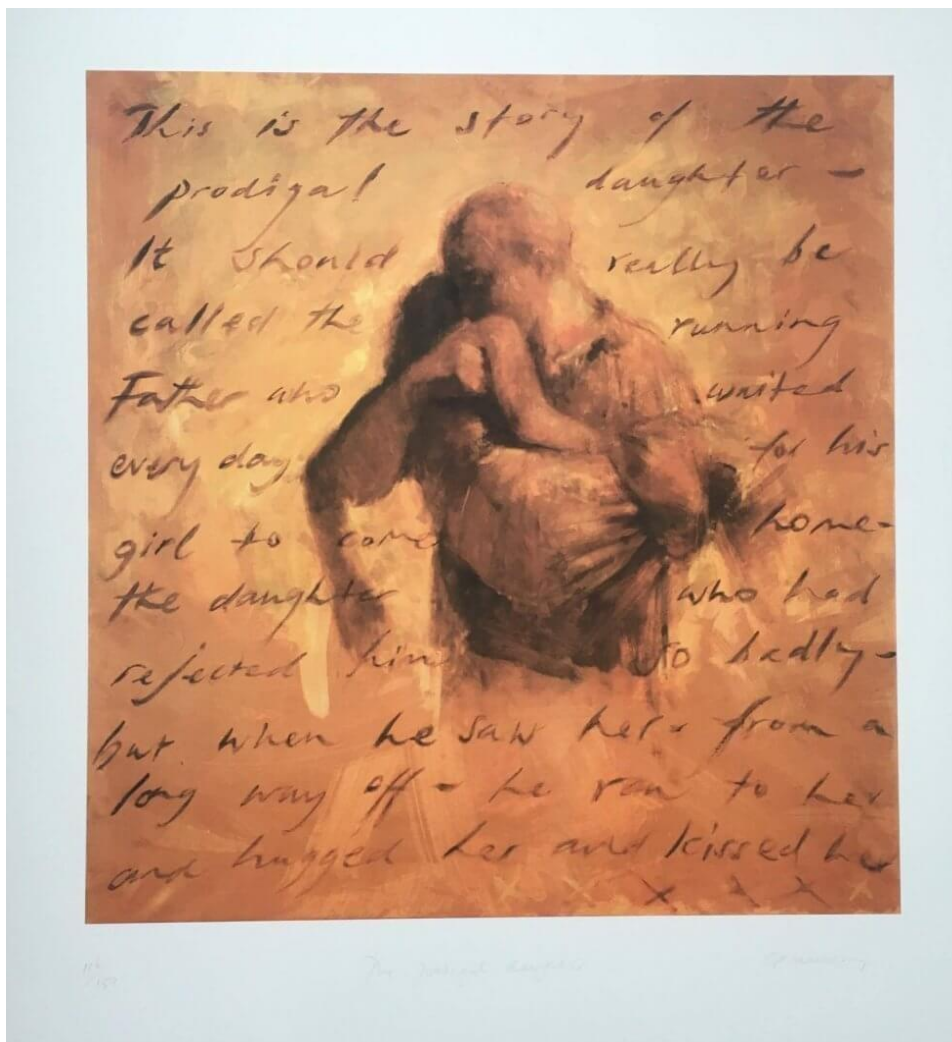 This is the story of the
prodigal daughter -
It should really be
called the running
Father who waited
every day for his
girl to come home-
the daughter who had
rejected him so badly-
but when he saw her from a
long way off - he ran to her
and hugged her and kissed her
x x x x x x
The prodigal daughter